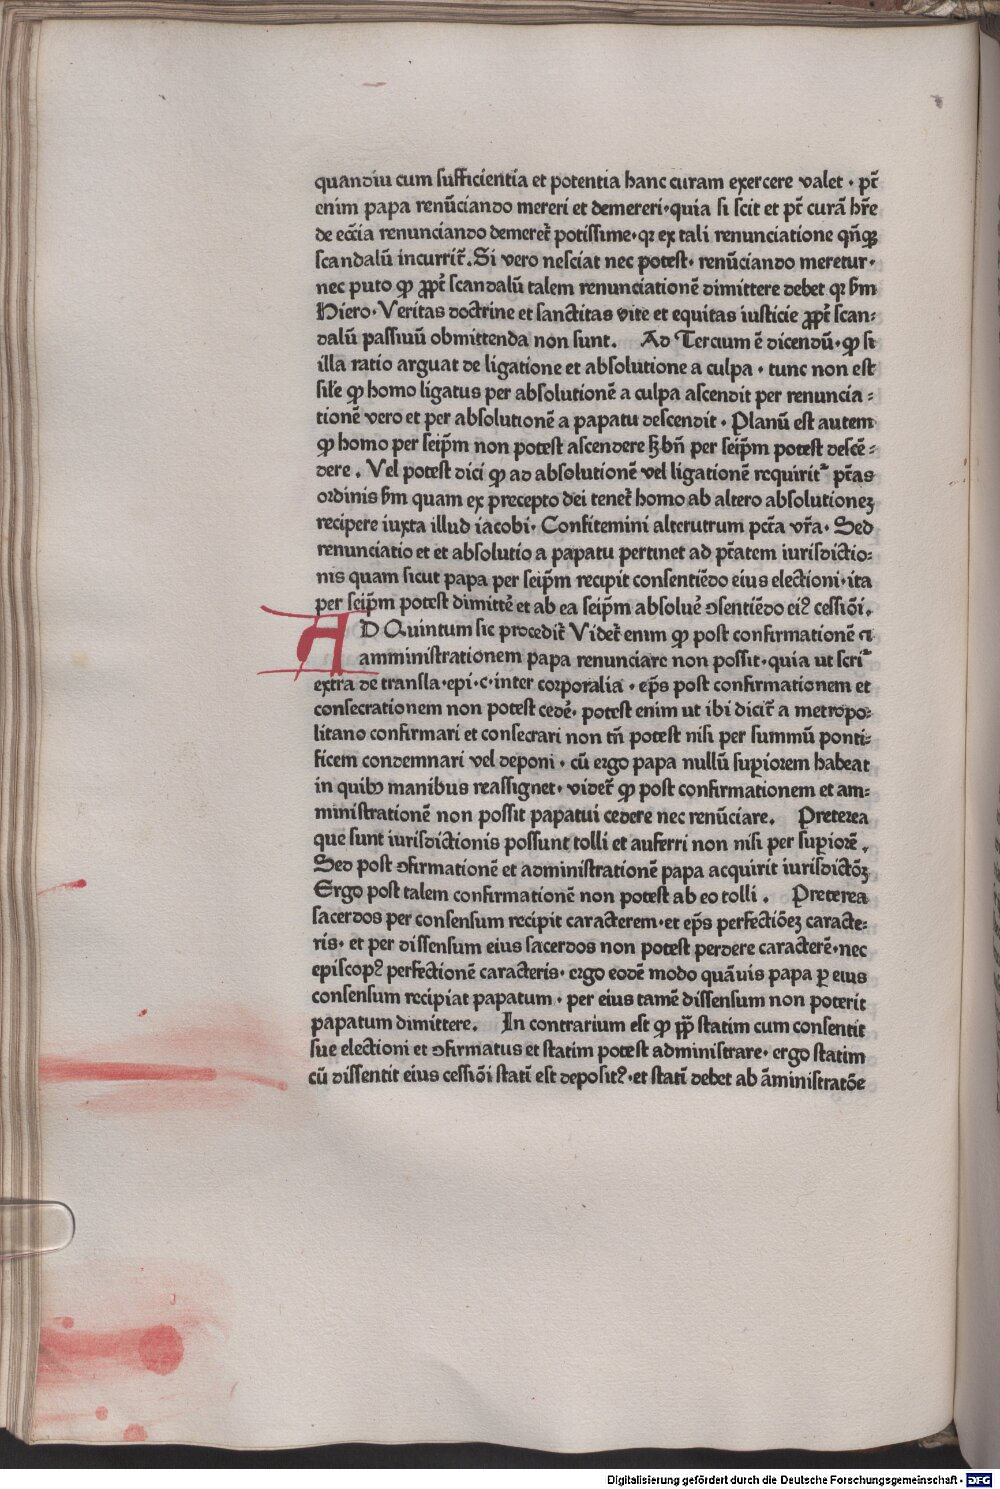 quandiu cum sufficientia et potentia hanc curam exercere valet · pt̄
enim papa renūciando mereri et demereri·quia si scit et pt̄ curā hr̄e
de ecc̄ia renunciando demeret᷑ potissime·qꝛ ex tali renunciatione qn̄qꝫ
scandalū incurrit᷑. Si vero nesciat nec potest· renūciando meretur·
nec puto ꝙ ꝓpt̄ scandalū talem renunciationē dimittere debet qꝛ ẜm
Hiero·Veritas doctrine et sanctitas vite et equitas iusticie ꝓpt̄ scan⸗
dalū passiuū obmittenda non sunt. Ad Tercium ē dicendū·ꝙ si
illa ratio arguat de ligatione et absolutione a culpa · tunc non est
sil̄e ꝙ homo ligatus per absolutionē a culpa ascendit per renuncia⸗
tionē vero et per absolutionē a papatu descendit · Planū est autem
ꝙ homo per seip̄m non potest ascendere sꝫ bn̄ per seip̄m potest descē⸗
dere . Vel potest dici ꝙ ad absolutionē vel ligationē requirit᷑ pt̄as
ordinis ẜm quam ex precepto dei tenet᷑ homo ab altero absolutioneꝫ
recipere iuxta illud iacobi· Confitemini alterutrum pct̄a vr̄a· Sed
renunciatio et et absolutio a papatu pertinet ad pt̄atem iurisdictio⸗
nis quam sicut papa per seip̄m recipit consentiēdo eius electioni·ita
per seip̄m potest dimitte᷑ et ab ea seip̄m absolue᷑ ꝯsentiēdo eiꝰ cessiōi.
AD Quintum sic procedit᷑ Videt᷑ enim ꝙ post confirmationē ⁊
amministrationem papa renunciare non possit·quia ut scri᷑
extra de transla·epi·c·inter corporalia · ep̄s post confirmationem et
consecrationem non potest cede᷑· potest enim ut ibi dicit᷑ a metropo⸗
litano confirmari et consecrari non tn̄ potest nisi per summū ponti⸗
ficem condemnari vel deponi · cū ergo papa nullū suꝑiorem habeat
in quibꝰ manibus reassignet· videt᷑ ꝙ post confirmationem et am⸗
ministrationē non possit papatui cedere nec renūciare. Preterea
que sunt iurisdictionis possunt tolli et auferri non nisi per suꝑiorē .
Sed post ꝯfirmationē et administrationē papa acquirit iurisdictōꝫ
Ergo post talem confirmationē non potest ab eo tolli . Preterea
sacerdos per consensum recipit caracterem·et ep̄s perfectiōeꝫ caracte⸗
ris· et per dissensum eius sacerdos non potest perdere caracterē·nec
episcopꝰ perfectionē caracteris· ergo eodē modo quāuis papa ꝑ eius
consensum recipiat papatum · per eius tamē dissensum non poterit
papatum dimittere. In contrarium est ꝙ pp̄ statim cum consentit
sue electioni et ꝯfirmatus et statim potest administrare· ergo statim
cū dissentit eius cessiōi stati᷑ est depositꝰ·et stati᷑ debet ab āministratōe
Digitalisierung gefördert durch die Deutsche Forschungsgemeinschaft - DFG